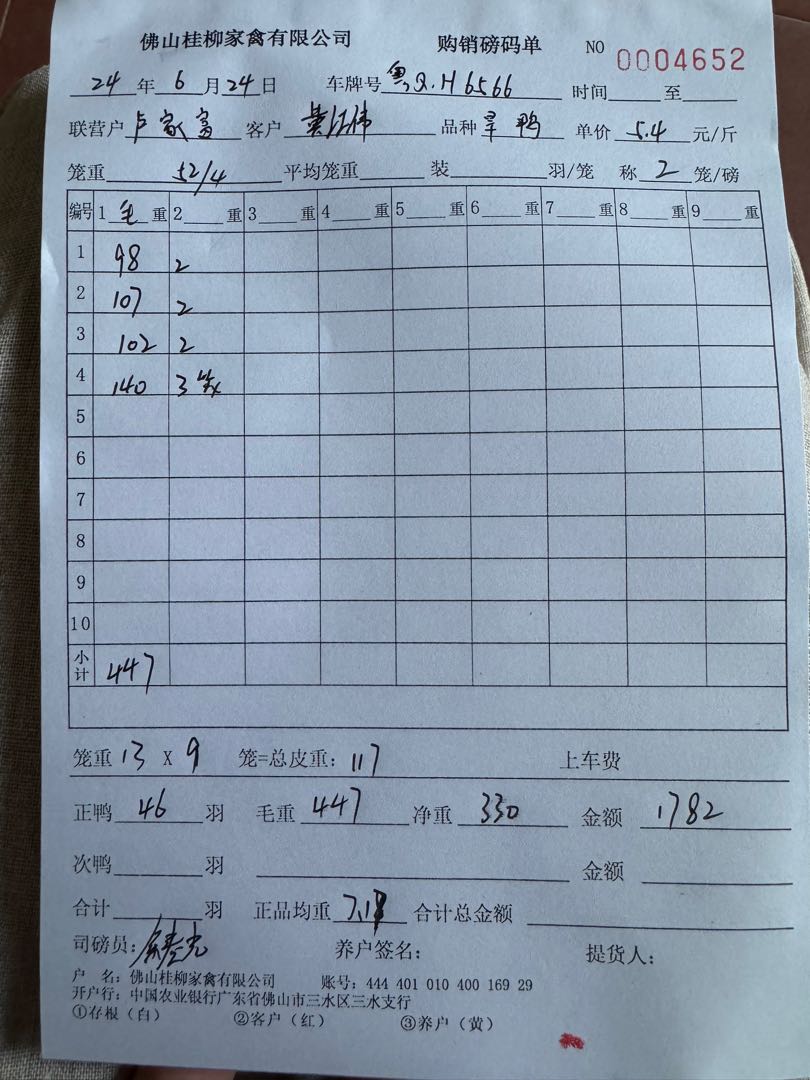 佛山桂柳家禽有限公司 购销磅码单 NO 0004652
24年6月24日 车牌号粤Q.H6566 时间____至____
联营户卢家富 客户 品种旱鸭 单价5.4元/斤
笼重52/4 平均笼重____ 装____羽/笼 称2笼/磅
编号 1毛重 2____重 3____重 4____重 5____重 6____重 7____重 8____重 9____重
1 98 2
2 107 2
3 102 2
4 140 3
5
6
7
8
9
10
小计 447
笼重13X9 笼=总皮重:117 上车费
正鸭46羽 毛重447 净重330 金额1782
次鸭____羽 金额____
合计____羽 正品均重7.18 合计总金额____
司磅员: 养户签名: 提货人:
户 名:佛山桂柳家禽有限公司 账号:444 401 010 400 169 29
开户行:中国农业银行广东省佛山市三水区三水支行
①存根(白) ②客户(红) ③养户(黄)